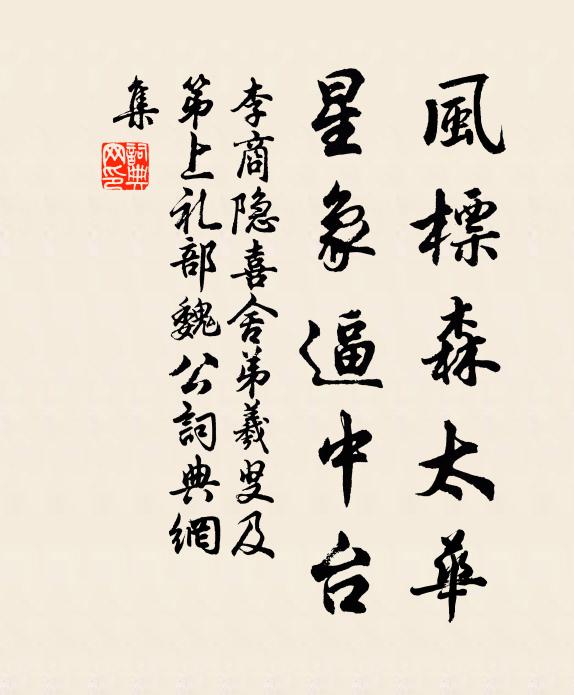 風標森太華
星象逼中台
李商隐喜舍弟羲叟及
第上礼部魏公詞典網
集
詞典網印